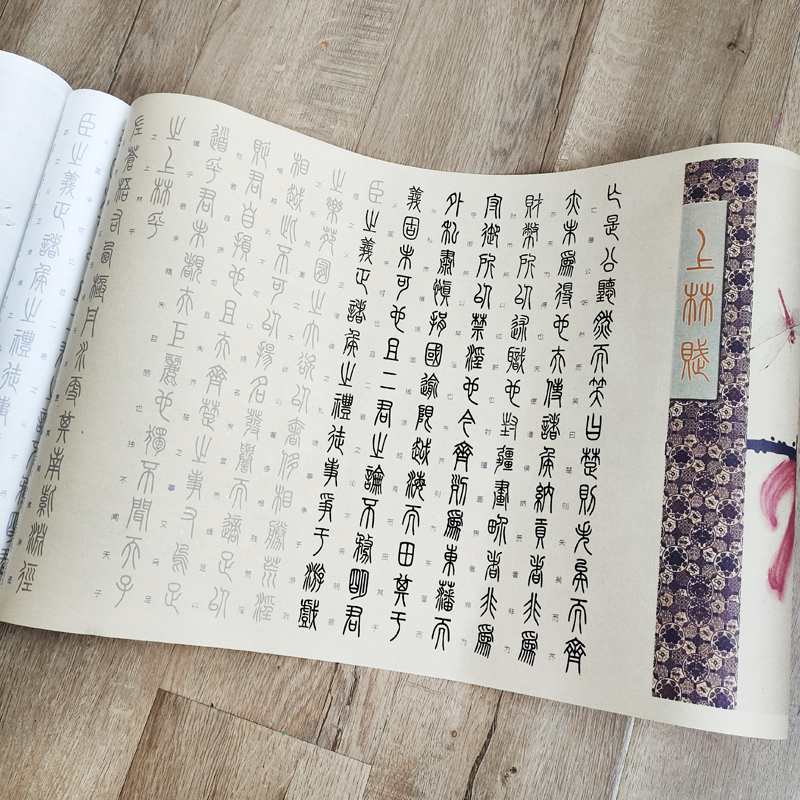 上林賦
亡是公聽然而笑曰楚則失矣而齊
亦未為得也夫使諸侯納貢者非為
財幣所以述職也封疆畫界者非為
守御所以禁淫也今齊列為東藩而
外私肅慎捐國逾限越海而田其于
義固未可也且二君之論不務明君
臣之義正諸侯之禮徒事爭于游戲
之樂苑囿之大欲以奢侈相勝荒淫
相越此不可以揚名發譽而適足以
貶君自損也且夫齊楚之事又烏足
道乎君未睹夫巨麗也獨不聞天子
之上林乎
左蒼梧右西極丹水更其南紫淵徑
臣之義正諸侯之禮徒事